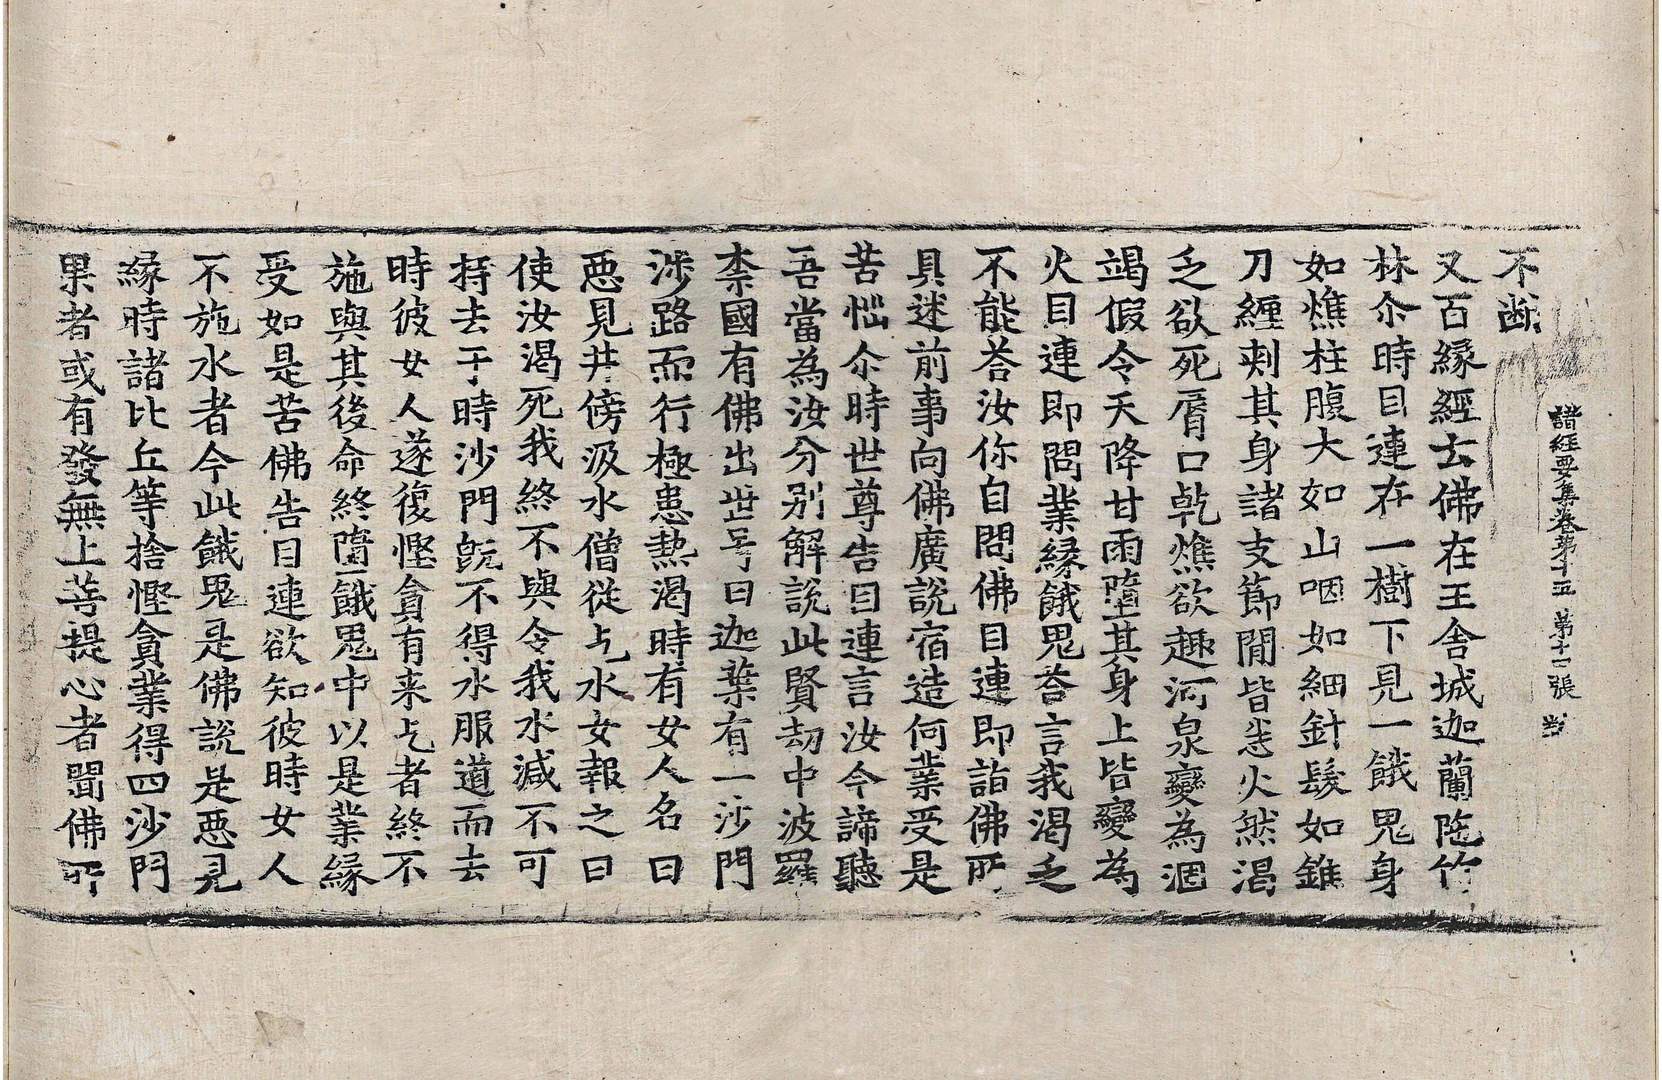 諸經要集卷第十五 第十四張
不斷
又百緣經云佛在王舍城迦蘭陁竹
林尒時目連在一樹下見一餓鬼身
如燋柱腹大如山咽如細針髮如錐
刀纏刾其身諸支節閒皆悉火然渴
乏欲死脣口乹燋欲趣河泉變為涸
竭假令天降甘雨墮其身上皆變為
火目連即問業緣餓鬼荅言我渴乏
不能荅汝你自問佛目連即詣佛所
具述前事向佛廣說宿造何業受是
苦惱尒時世尊告目連言汝今諦聽
吾當為汝分別解說此賢劫中波羅
柰國有佛出世号曰迦葉有一沙門
涉路而行極患熱渴時有女人名曰
惡見井傍汲水僧從乞水女報之曰
使汝渴死我終不與令我水減不可
持去于時沙門旣不得水服道而去
時彼女人遂復慳貪有来乞者終不
施與其後命終墮餓鬼中以是業緣
受如是苦佛告目連欲知彼時女人
不施水者今此餓鬼是佛說是惡見
緣時諸比丘等捨慳貪業得四沙門
果者或有發無上菩提心者聞佛所